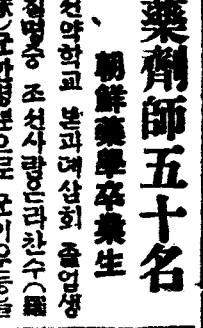 藥劑師五十名
朝鮮藥學卒業生
선약학교 본과뎨삼회 졸업생
질명중 조선사람은라찬수(羅